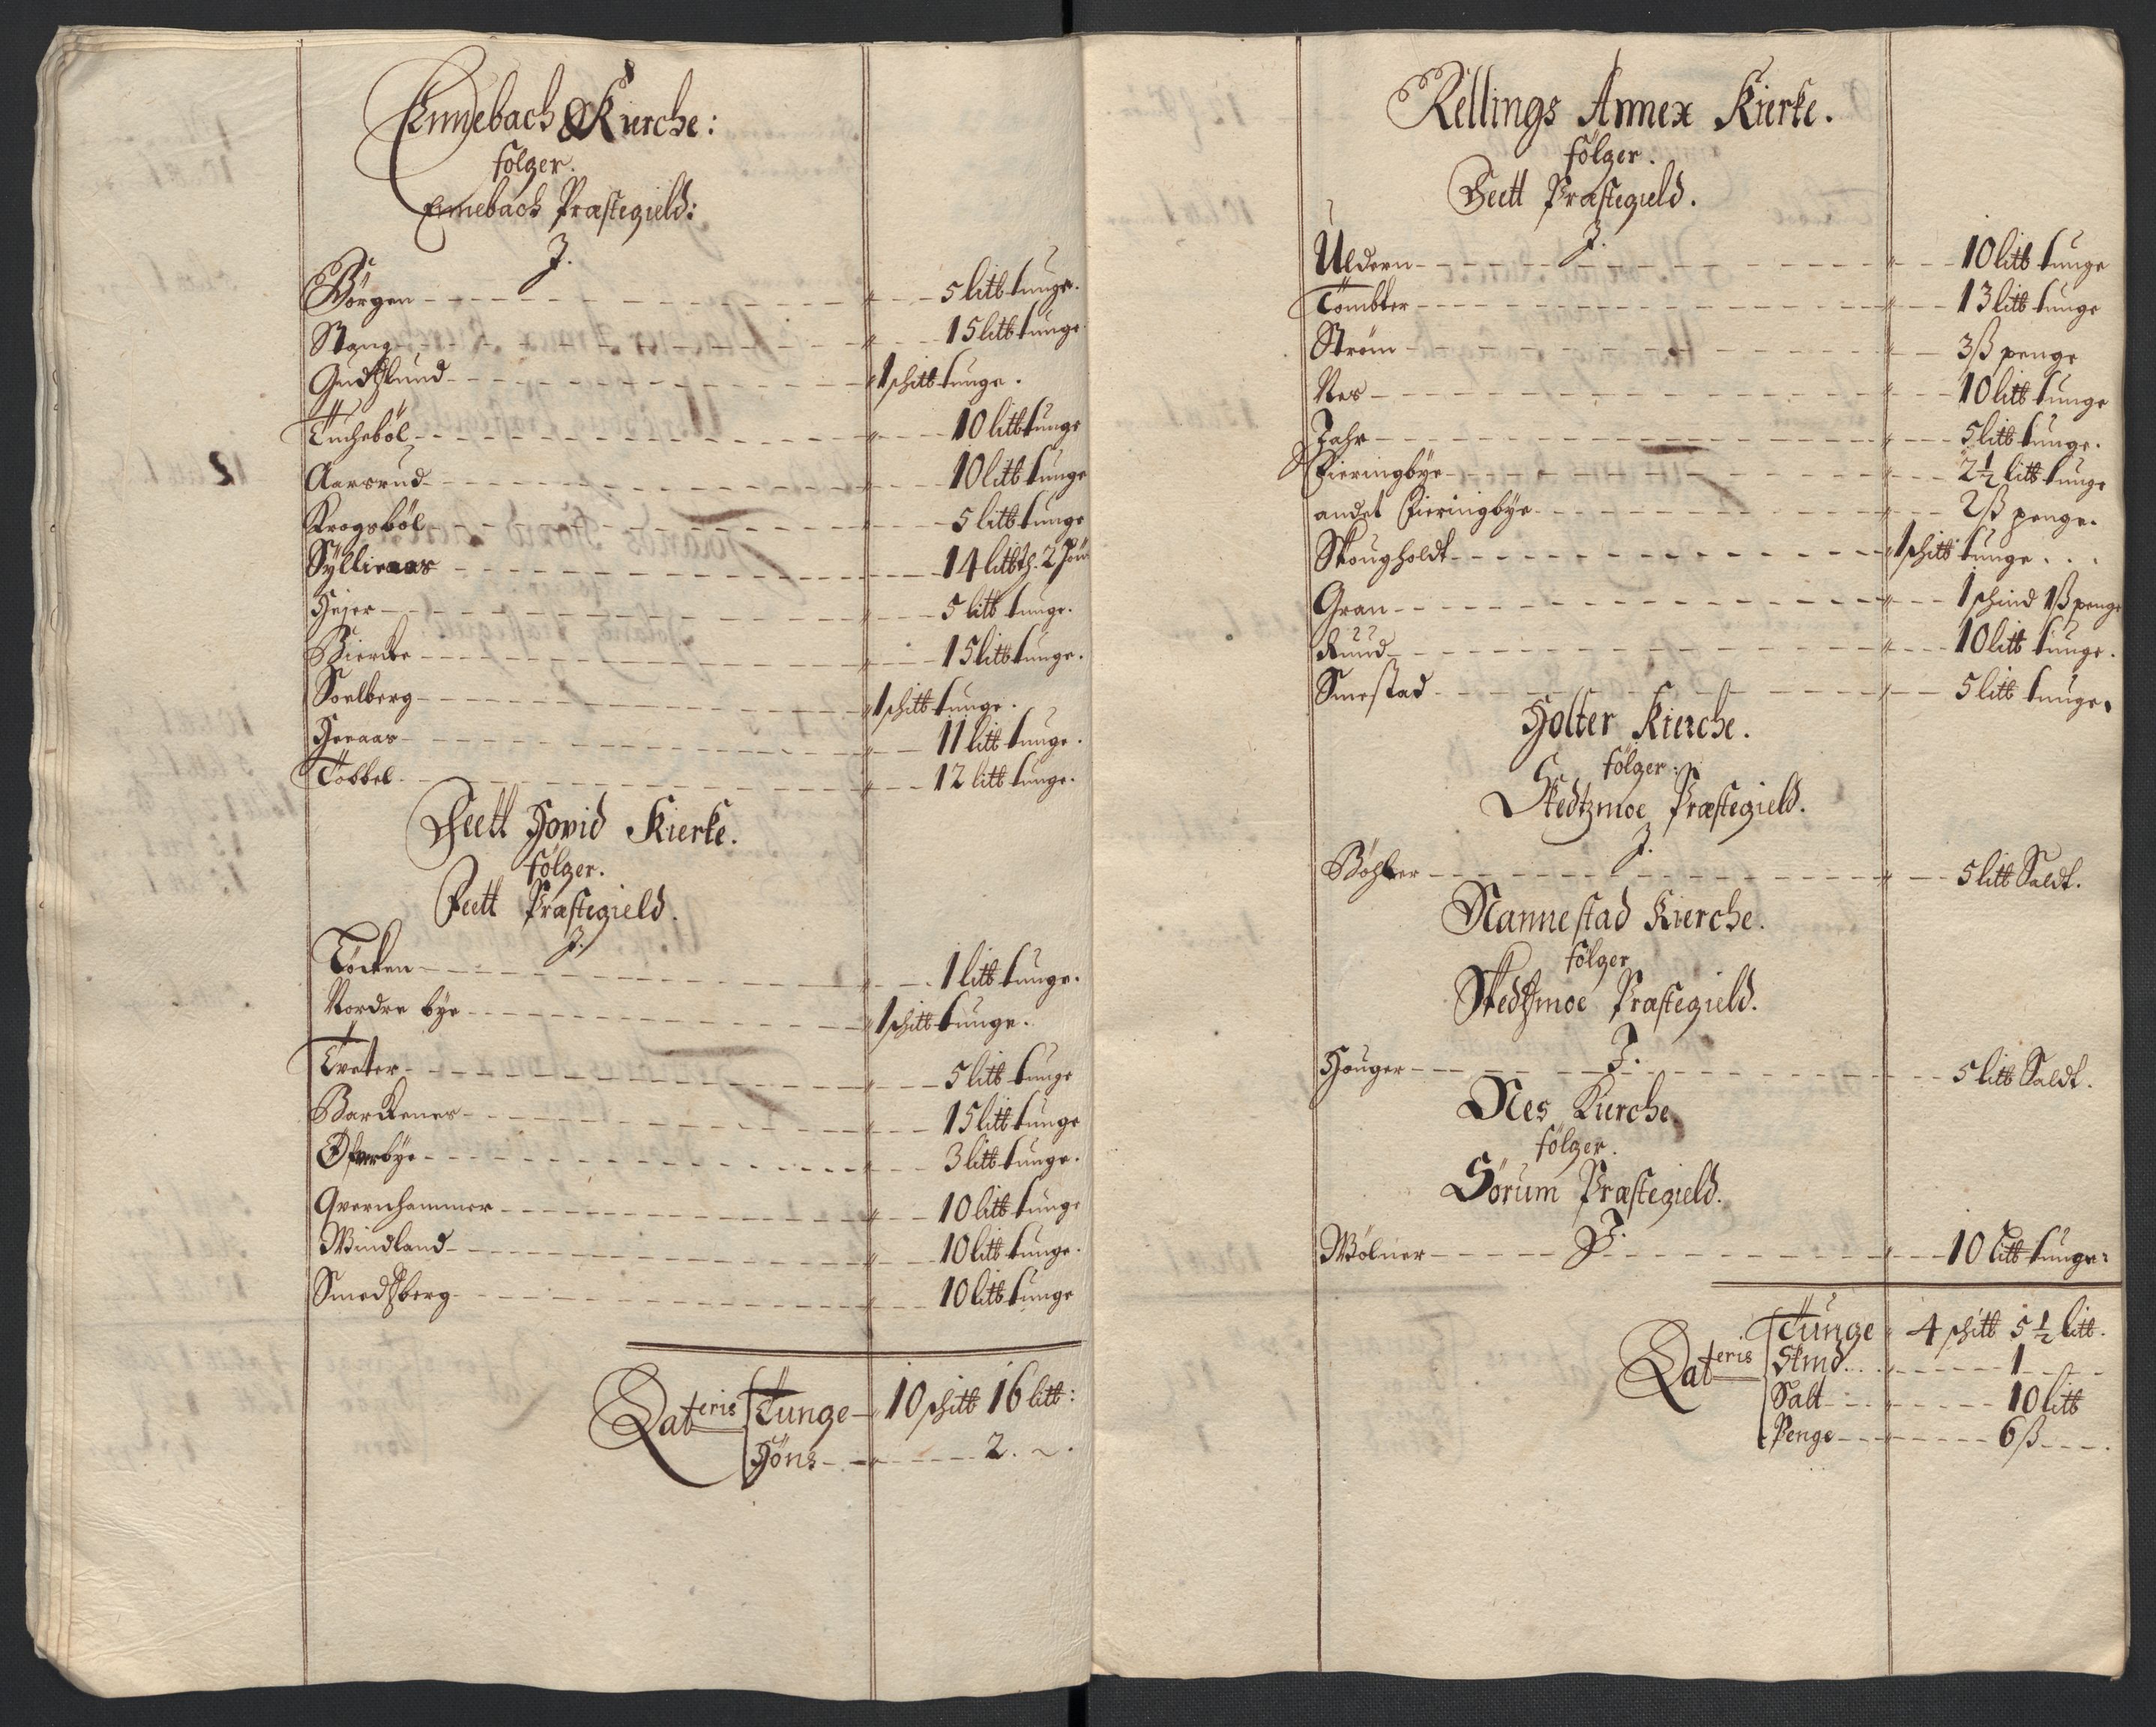 Ennebach Kierche:
følger.
Ennebach Præstegield:
J.
Börgen 5 litt tunge.
Stang 15 litt tunge.
Gudtzlund 1 schitt tunge.
Tucheböl 10 litt tunge
Aarsrud 10 litt tunge
Krogsböl 5 litt tunge
Sylliraas 14 litt th. 2 Höns
Hejer 5 litt tunge.
Biercke 15 litt tunge.
Soelberg 1 schitt tunge.
Heraas 11 litt tunge.
Tobbel 12 litt tunge.
Feett Hovid Kierke.
følger.
Feett Præstegield.
J.
Töcken 1 litt tunge.
Nordre bye 1 schitt tunge.
Tveter 5 litt tunge
Barkenes 15 litt tunge
Öfverbye 3 litt tunge.
Qvernhammer 10 litt tunge
Windland 10 litt tunge.
Smedtzberg 10 litt tunge
Lateris Tunge 10 schitt 16 litt:
Höns 2.
Rellings Annex Kierke.
følger.
Feett Præstegield.
J.
Uldern 10 litt tunge
Tömbter 13 litt tunge
Ström 3 ß penge
Nes 10 litt tunge
Jahr 5 litt tunge.
Fieringbye 2½ litt tunge
andet Fieringbye 2 ß penge.
Skougholdt 1 schitt tunge.
Gran 1 schind 1 ß penge
Ruud 10 litt tunge.
Smestad 5 litt tunge.
Holter Kierche.
følger:
Skedtzmoe Præstegield.
J.
Böhler 5 litt Saldt.
Nannestad Kierche.
følger
Skedtzmoe Præstegield.
J.
Houger 5 litt Saldt.
Nes Kierche
følger.
Sörum Præstegield.
J.
Wölner 10 litt tunge:
Lateris Tunge 4 schitt 5½ litt.
Skind 1
Salt 10 litt
Penge 6 ß